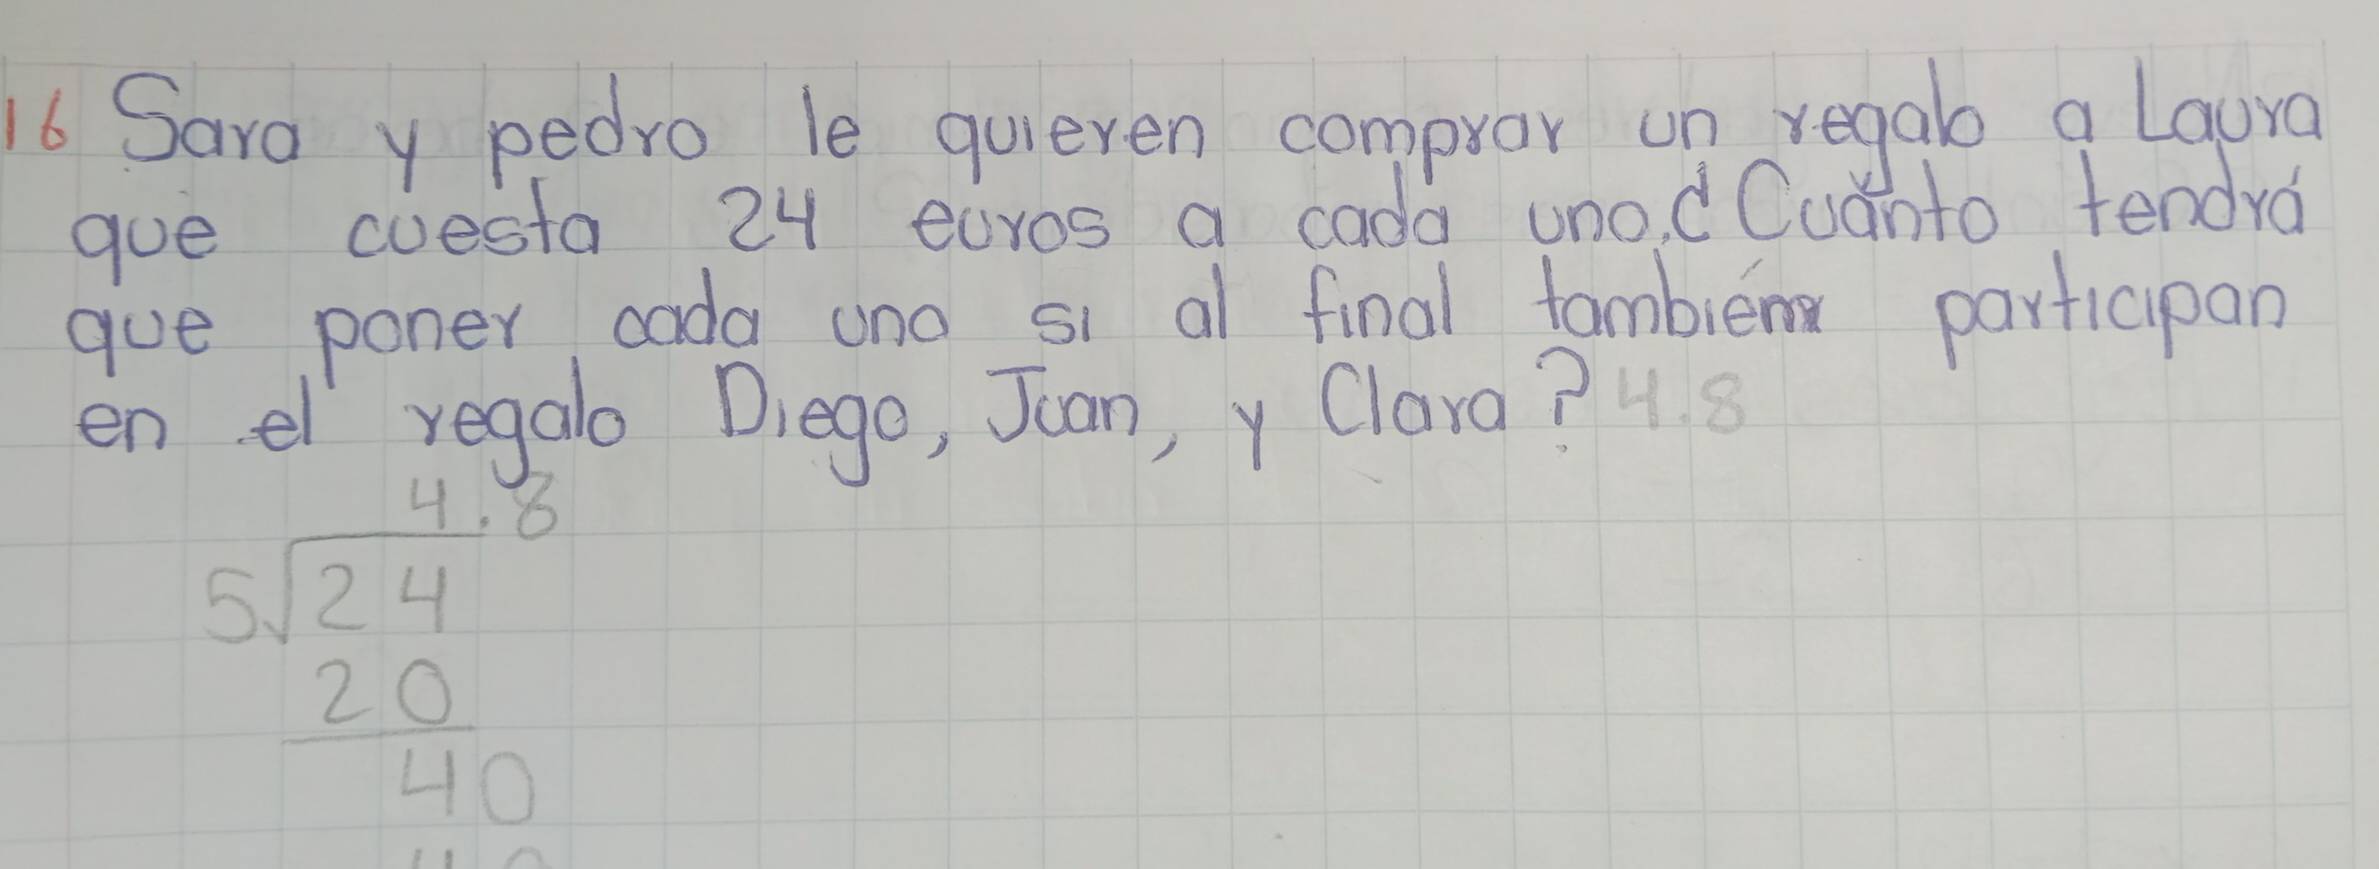 16 Sara y pedro le quieren comprar un regalo a Laura
que cuesta 24 euros a cada uno. ¿Cuánto tendrá
que poner cada uno si al final también participan
en el regalo Diego, Juan, y Clara? 4.8
4.8
5√24
20
40